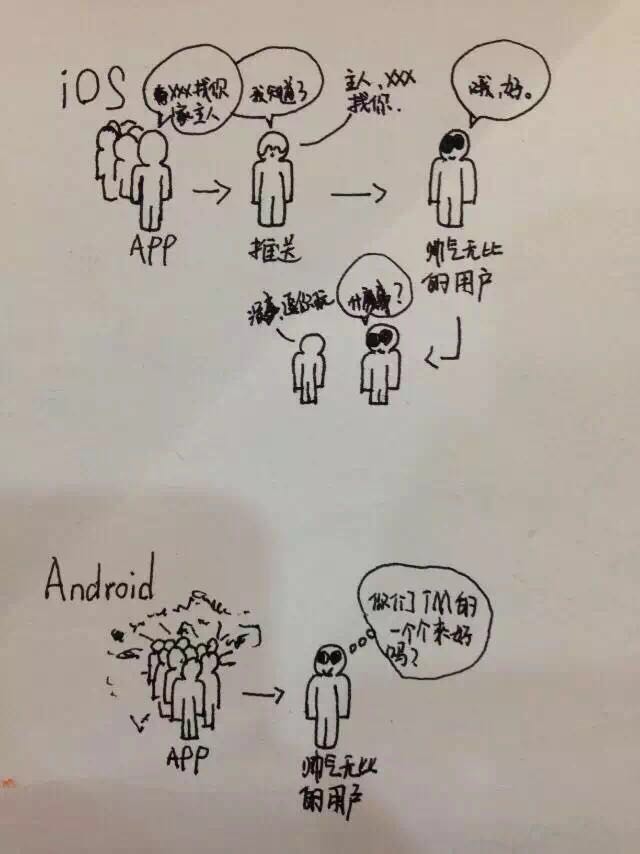 iOS
有XXX找你
家主人
我知道了
主人,XXX
找你.
哦,好。
APP
推送
帅气无比
的用户
没事,逗你玩
什麽事?
Android
你们TM的
一个个来好
吗?
APP
帅气无比
的用户